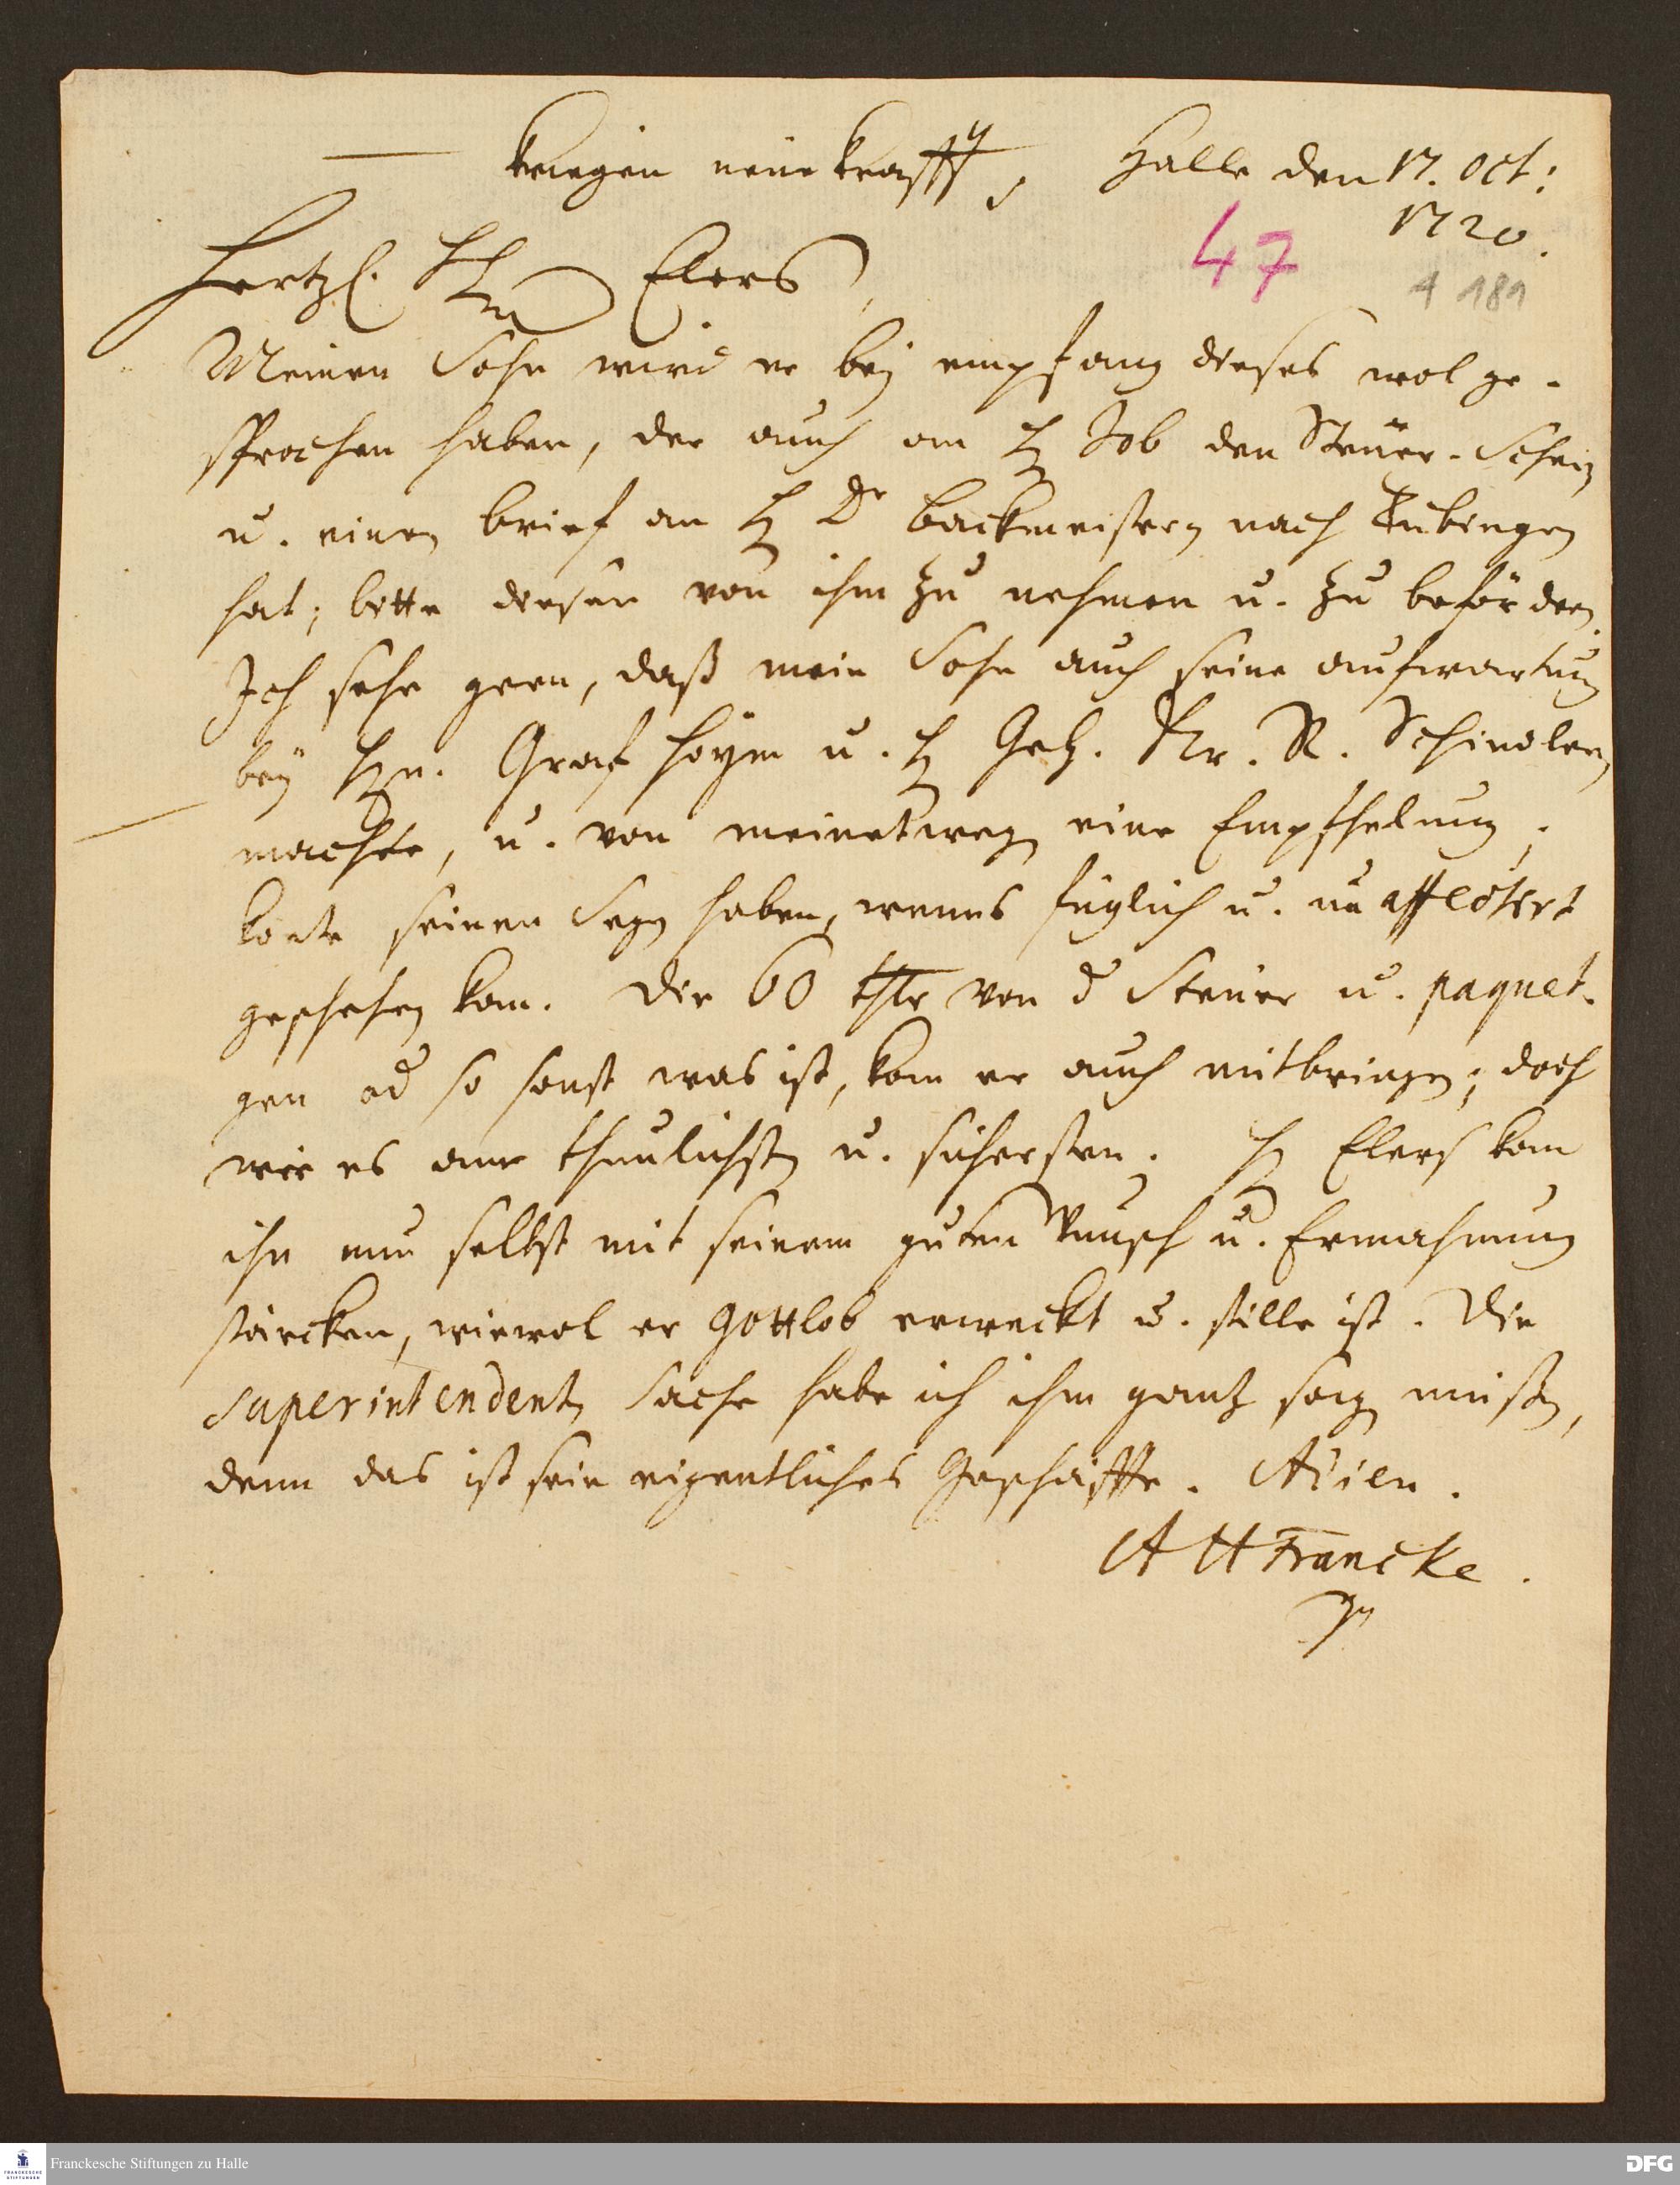 kriegen neue krafft, Halle den 17. Oct:
1720.
47
A 181
Hertzl. H. Elers,
Meinen Sohn wird er bey empfang dieses wol ge-
sprochen haben, der auch an H. Job den Steüer-Schein
u. einen brief an H. Dr Backmeistern nach Tubingen
hat; bitte diesen von ihm zu nehmen u. zu befördern.
Ich sehe gern, daß mein Sohn auch seine aufwartung
bey Hn. Graf Hoym u. H. Geh. Kr. R. Schindlern
machte, u. von meinetwegen eine Empfhelung;
konte seinen Segen haben, wenns füglich u. un affectirt
geschehen kan. Die 60 thlr von der Steuer u. paquet-
gen od so sonst was ist, kan er auch mitbringen; doch
wie es am thunlichsten u. sichersten. H. Elers kan
ihn nun selbst mit seinem guten Wunsch u. Ermahnung
stärcken, wiewol er Gottlob erweckt u. stille ist. Die
superintendenten Sache habe ich ihm gantz sagen müssen,
denn das ist sein eigentliches Geschäffte. Adieu.
AHFrancke.
Franckesche Stiftungen zu Halle
FRANCKESCHE STIFTUNGEN
DFG